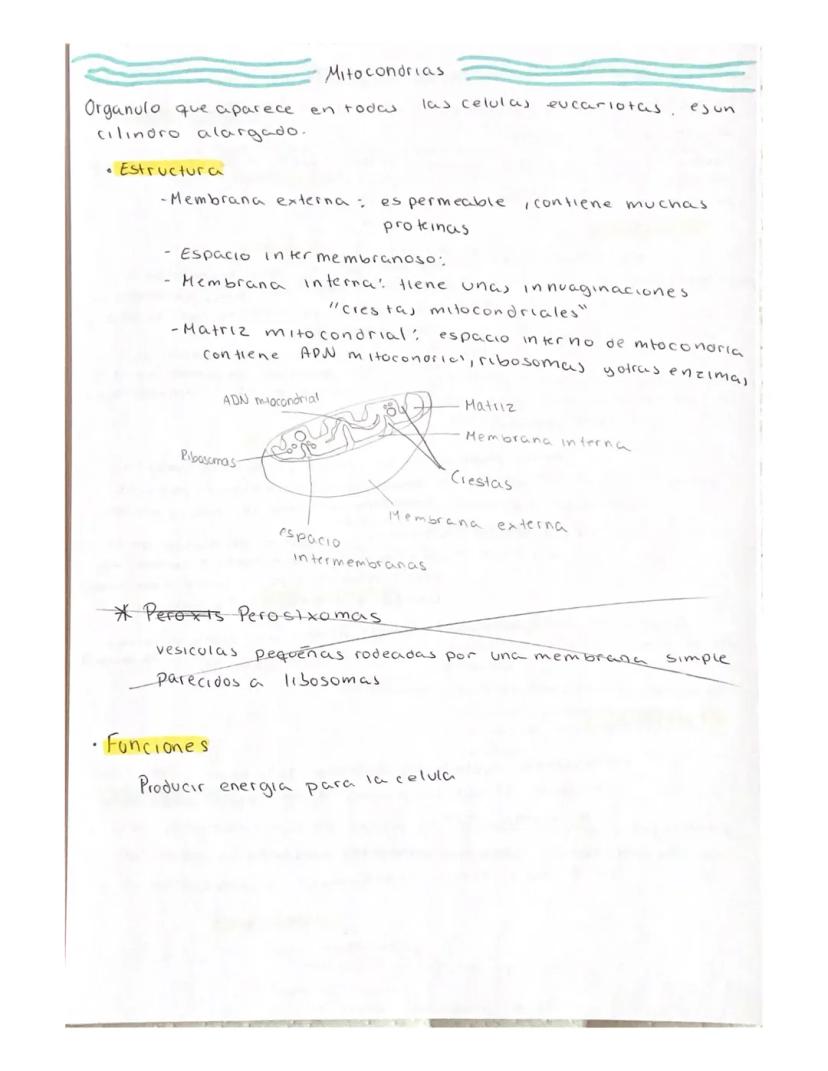 Mitocondrias
Organulo que aparece en todas las celulas eucariotas. es un
cilindro alargado.
• Estructura
- Membrana externa: es permeable, contiene muchas
proteinas
- Espacio intermembranoso:
- Membrana interna: tiene unas innvaginaciones
"crestas mitocondriales"
- Matriz mitocondrial: espacio interno de mtocondria
contiene ADN mitocondrial, ribosomas y otras enzimas
ADN mtocondrial
Matriz
Membrana interna
Ribosomas
Crestas
Membrana externa
espacio
intermembranas
* Peroxis Perosixomas
vesiculas pequeñas rodeadas por una membrana simple
parecidos a libosomas
• Funciones
Producir energia para la celula